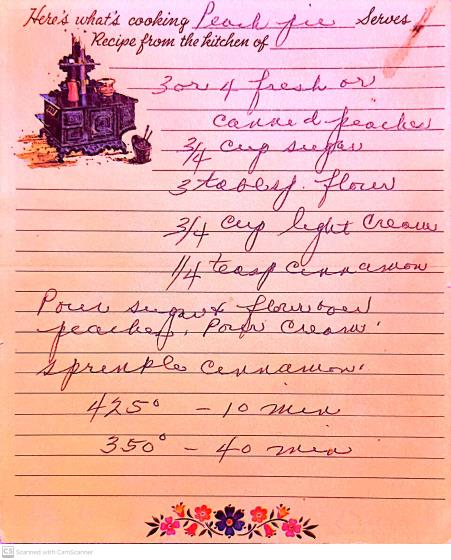 Here's what's cooking Peach pie Serves
Recipe from the kitchen of
3 or 4 fresh or
canned peaches
3/4 cup sugar
3 tablesp. flour
3/4 cup light cream
1/4 teasp cinnamon
Pour sugar & flour over
peaches, Pour cream.
sprinkle cinnamon.
425° - 10 min
350° - 40 min
CS Scanned with CamScanner